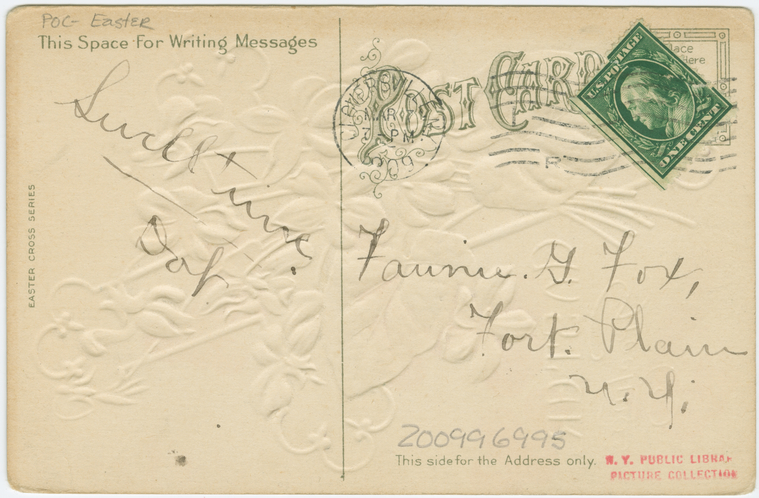 POC- Easter
This Space For Writing Messages
POST CARD
lace
Here
U.S. POSTAGE
ONE CENT
MAR
PM
Swell time.
EASTER CROSS SERIES
Fannie. G. Fox,
Fort. Plain
N.Y.
200996995
This side for the Address only.
N. Y. PUBLIC LIBRAR
PICTURE COLLECTION